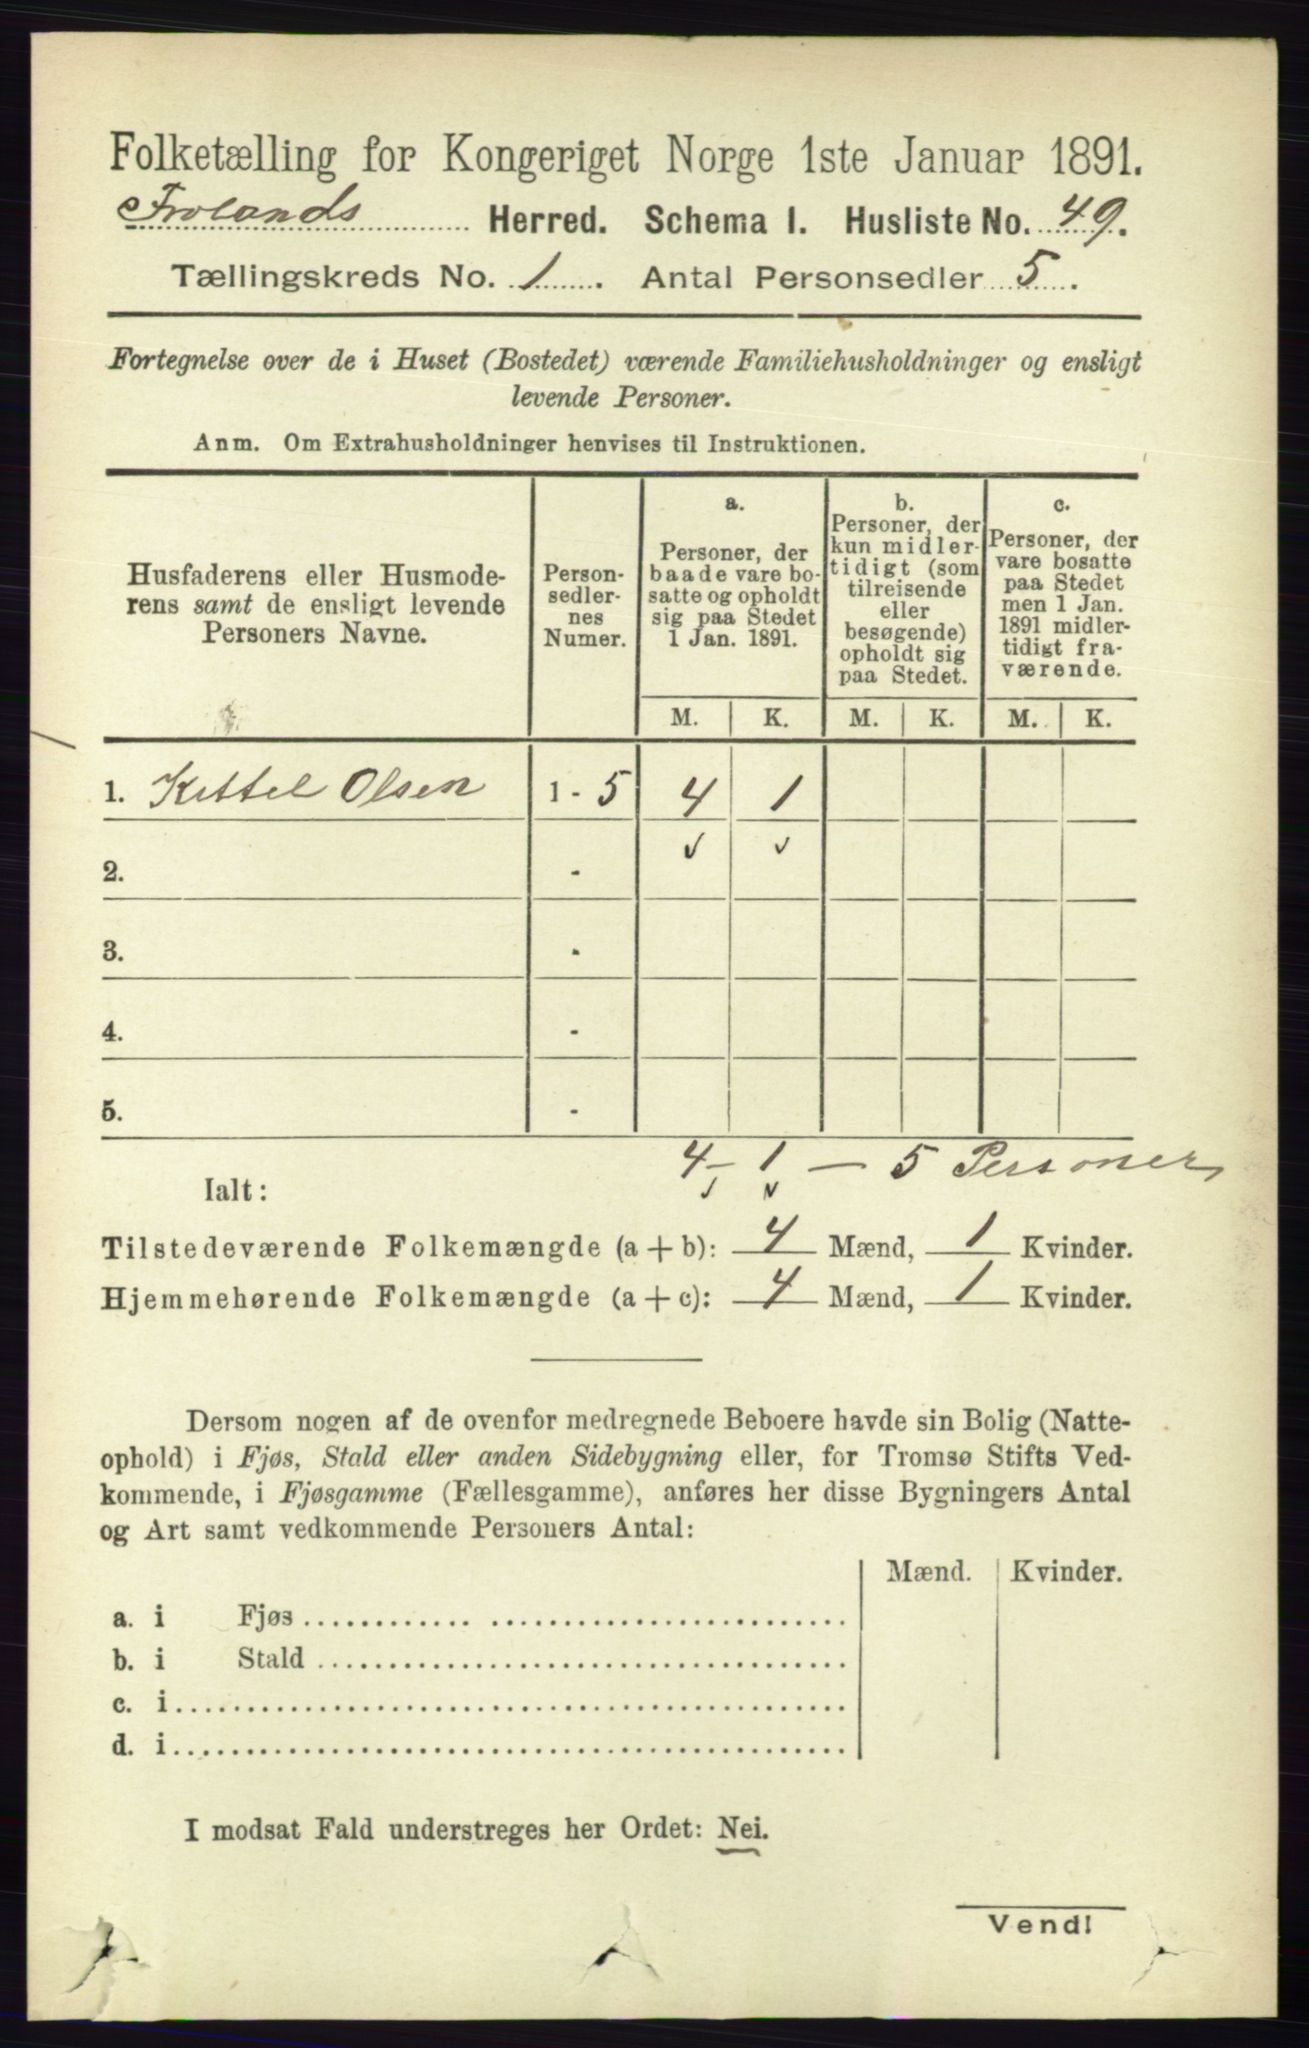 Folketælling for Kongeriget Norge 1ste Januar 1891.
Frolands Herred. Schema I. Husliste No. 49.
Tællingskreds No. 1. Antal Personsedler 5.
Fortegnelse over de i Huset (Bostedet) værende Familiehusholdninger og ensligt
levende Personer.
Anm. Om Extrahusholdninger henvises til Instruktionen.
Husfaderens eller Husmode-
rens samt de ensligt levende
Personers Navne.
Person-
sedler-
nes
Numer.
a.
Personer, der
baade vare bo-
satte og opholdt
sig paa Stedet
1 Jan. 1891.
b.
Personer, der
kun midler-
tidigt (som
tilreisende
eller
besøgende)
opholdt sig
paa Stedet.
c.
Personer, der
vare bosatte
paa Stedet
men 1 Jan.
1891 midler-
tidigt fra-
værende.
M. K. M. K. M. K.
1. Kittel Olsen 1 - 5 4 1
2. -
3. -
4. -
5. -
4 - 1 - 5 Personer
Ialt:
Tilstedeværende Folkemængde (a + b): 4 Mænd, 1 Kvinder.
Hjemmehørende Folkemængde (a + c): 4 Mænd, 1 Kvinder.
Dersom nogen af de ovenfor medregnede Beboere havde sin Bolig (Natte-
ophold) i Fjøs, Stald eller anden Sidebygning eller, for Tromsø Stifts Ved-
kommende, i Fjøsgamme (Fællesgamme), anføres her disse Bygningers Antal
og Art samt vedkommende Personers Antal:
Mænd. Kvinder.
a. i Fjøs
b. i Stald
c. i
d. i
I modsat Fald understreges her Ordet: Nei.
Vend!